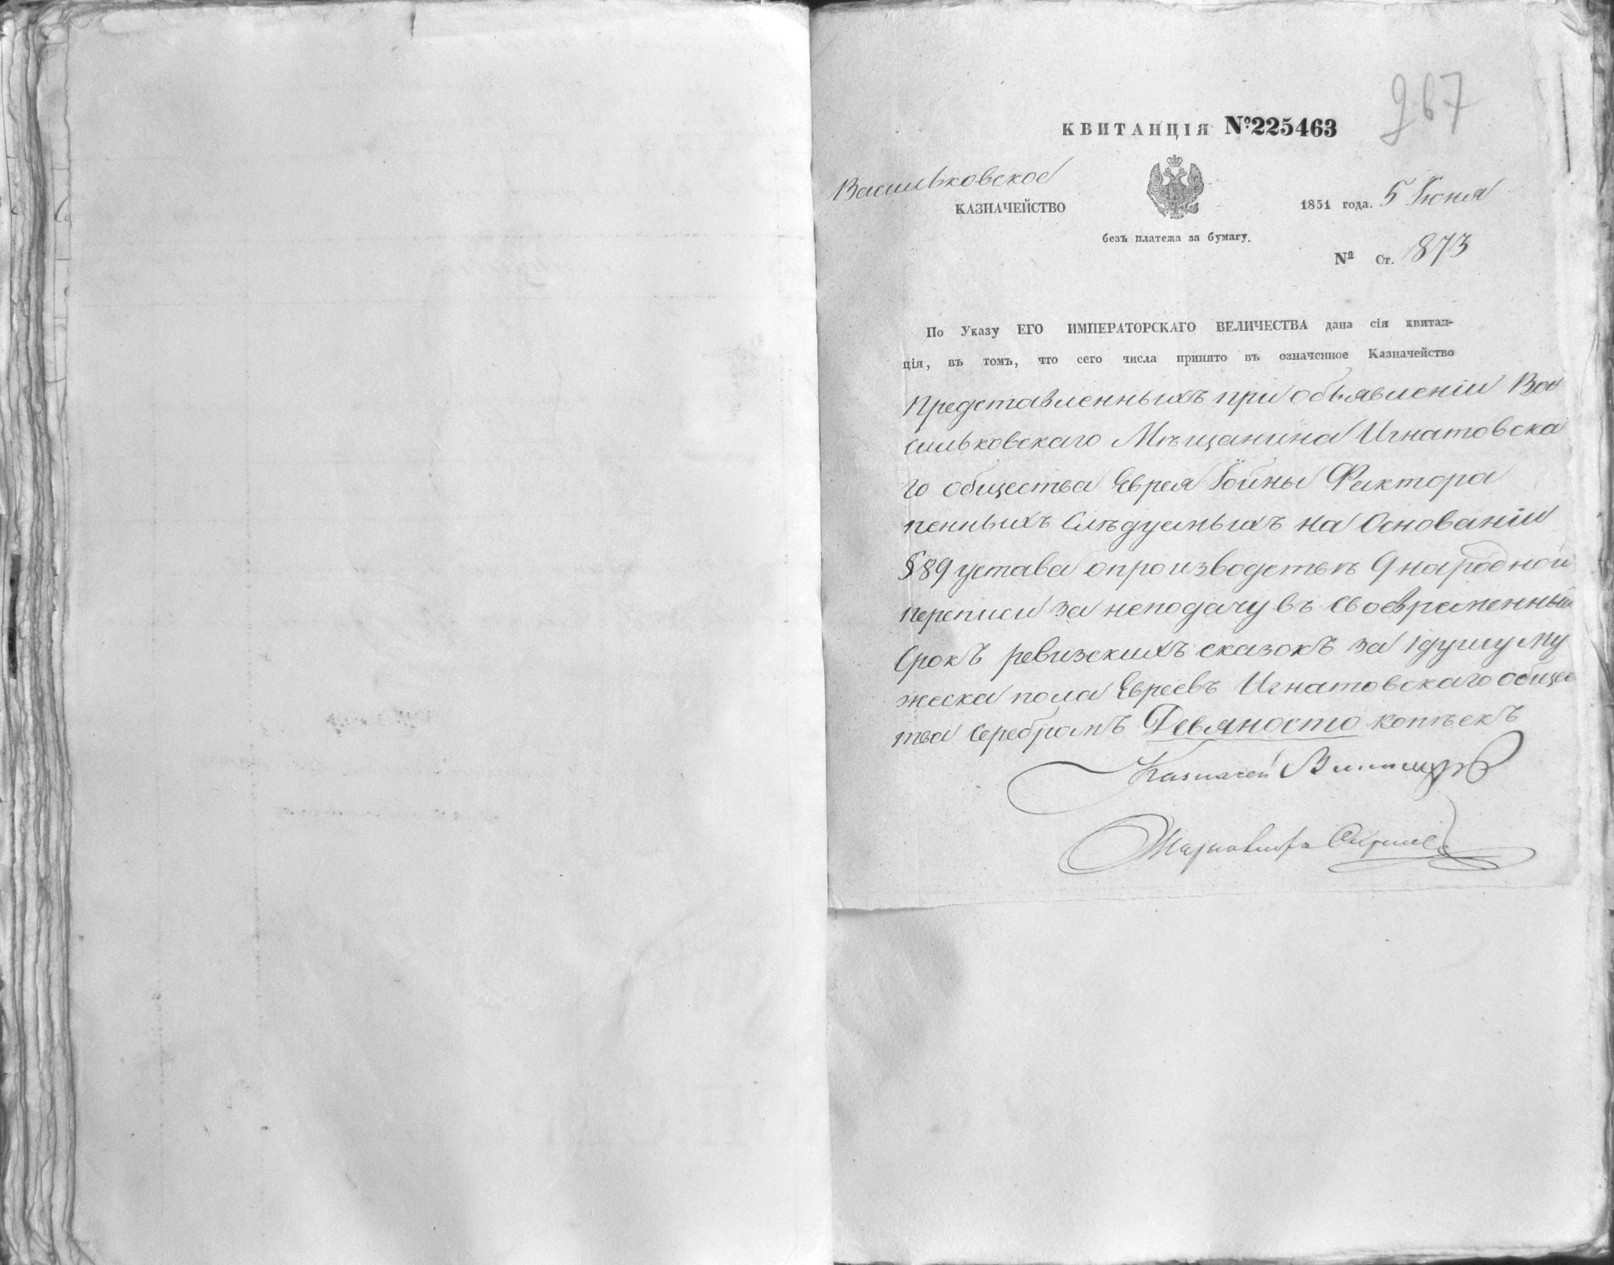 267
КВИТАНЦІЯ №225463
Васильковское
КАЗНАЧЕЙСТВО
1851 года. 5 Іюня
безъ платежа за бумагу.
№ Ст. 873
По Указу ЕГО ИМПЕРАТОРСКАГО ВЕЛИЧЕСТВА дана сія квитан-
ція, въ томъ, что сего числа принято въ означенное Казначейство
Представленныхъ при объявленіи Ва
сильковскаго Мѣщанина Игнатовска
го общества Еврея Іойны Фактора
пенныхъ Слѣдуемыхъ на Основаніи
§ 89 устава о производствѣ 9 народной
переписи за неподачу въ своевременный
Срокъ ревизскихъ сказокъ за 1 душу му
жеска пола Евреевъ Игнатовскаго общес
тва серебромъ Девяносто копѣекъ
Казначей